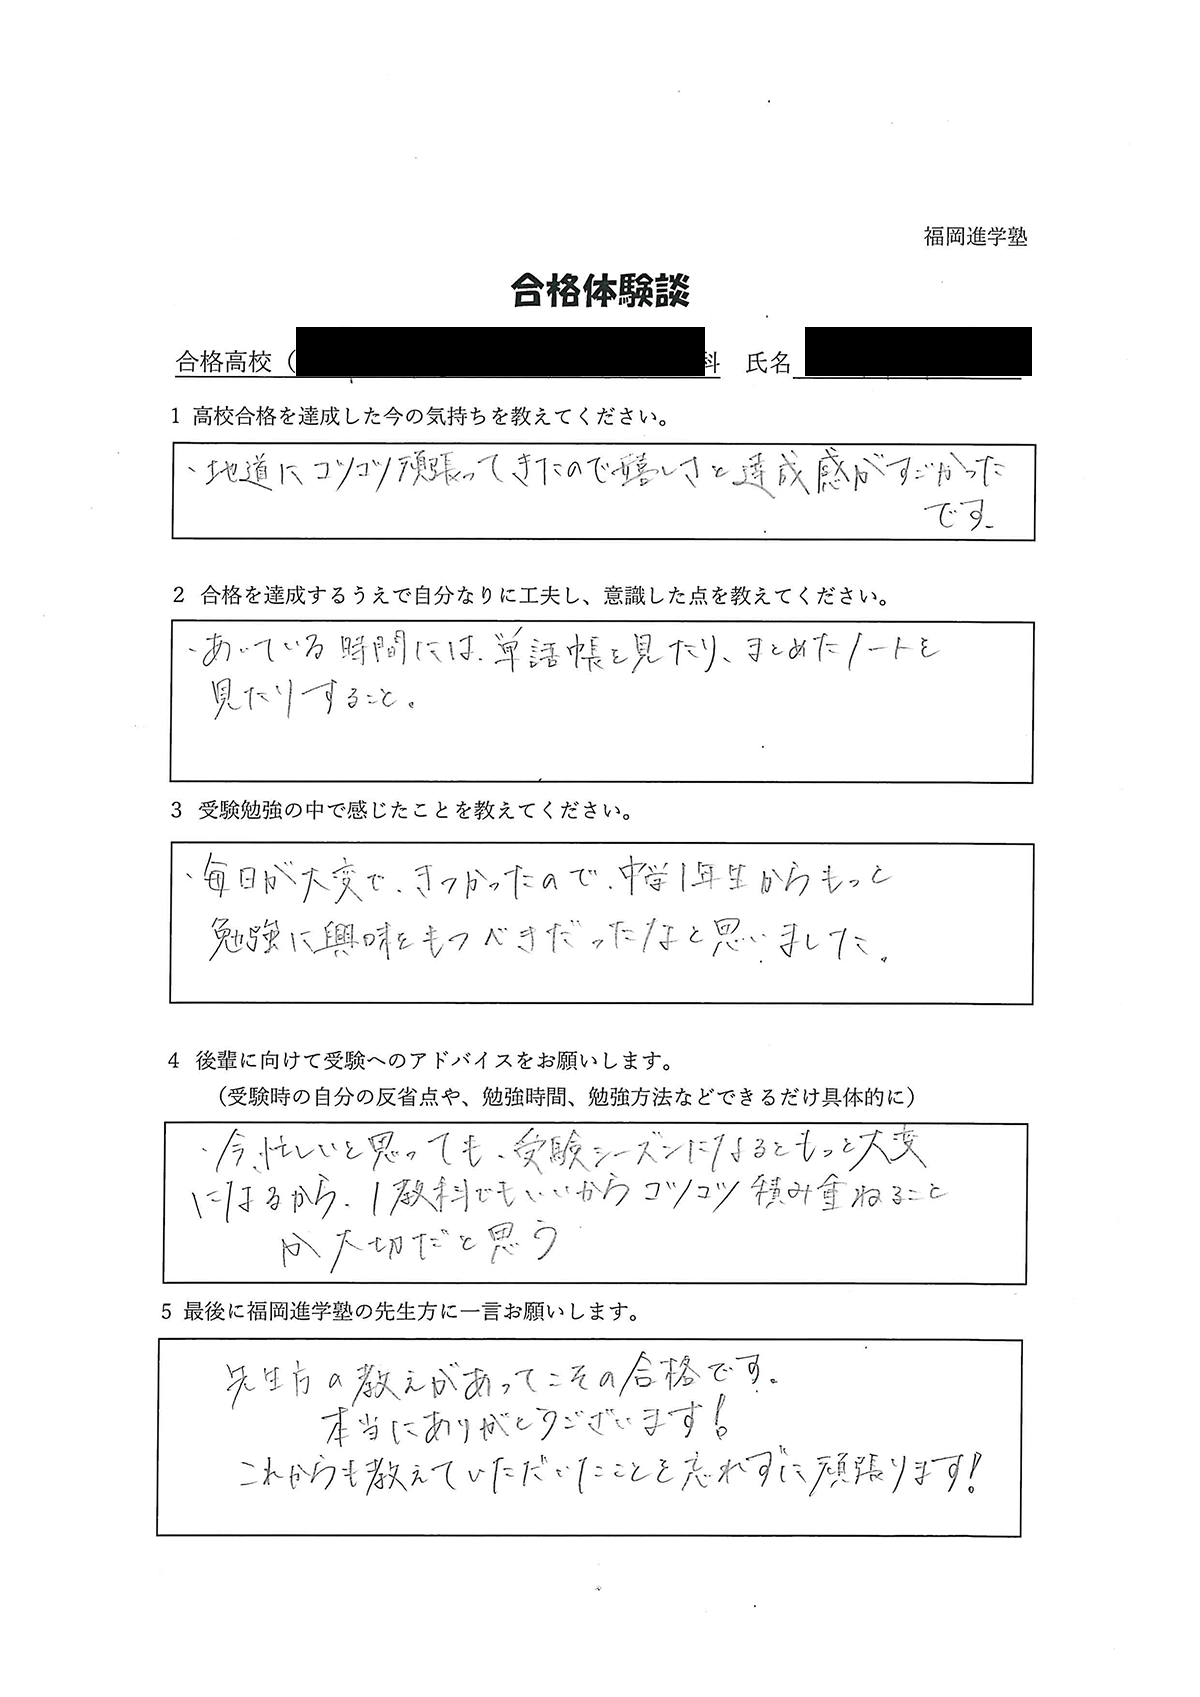 福岡進学塾
合格体験談
合格高校（
科 氏名
1 高校合格を達成した今の気持ちを教えてください。
・地道にコツコツ頑張ってきたので嬉しさと達成感がすごかった
です。
2 合格を達成するうえで自分なりに工夫し、意識した点を教えてください。
・あいている時間には、単語帳を見たり、まとめたノートを
見たりすること。
3 受験勉強の中で感じたことを教えてください。
・毎日が大変で、きつかったので、中学1年生からもっと
勉強に興味をもつべきだったなと思いました。
4 後輩に向けて受験へのアドバイスをお願いします。
（受験時の自分の反省点や、勉強時間、勉強方法などできるだけ具体的に）
・今、忙しいと思っても、受験シーズンになるともっと大変
になるから、1教科でもいいからコツコツ積み重ねること
が大切だと思う
5 最後に福岡進学塾の先生方に一言お願いします。
先生方の教えがあってこその合格です。
本当にありがとうございます!
これからも教えていただいたことを忘れずに頑張ります!